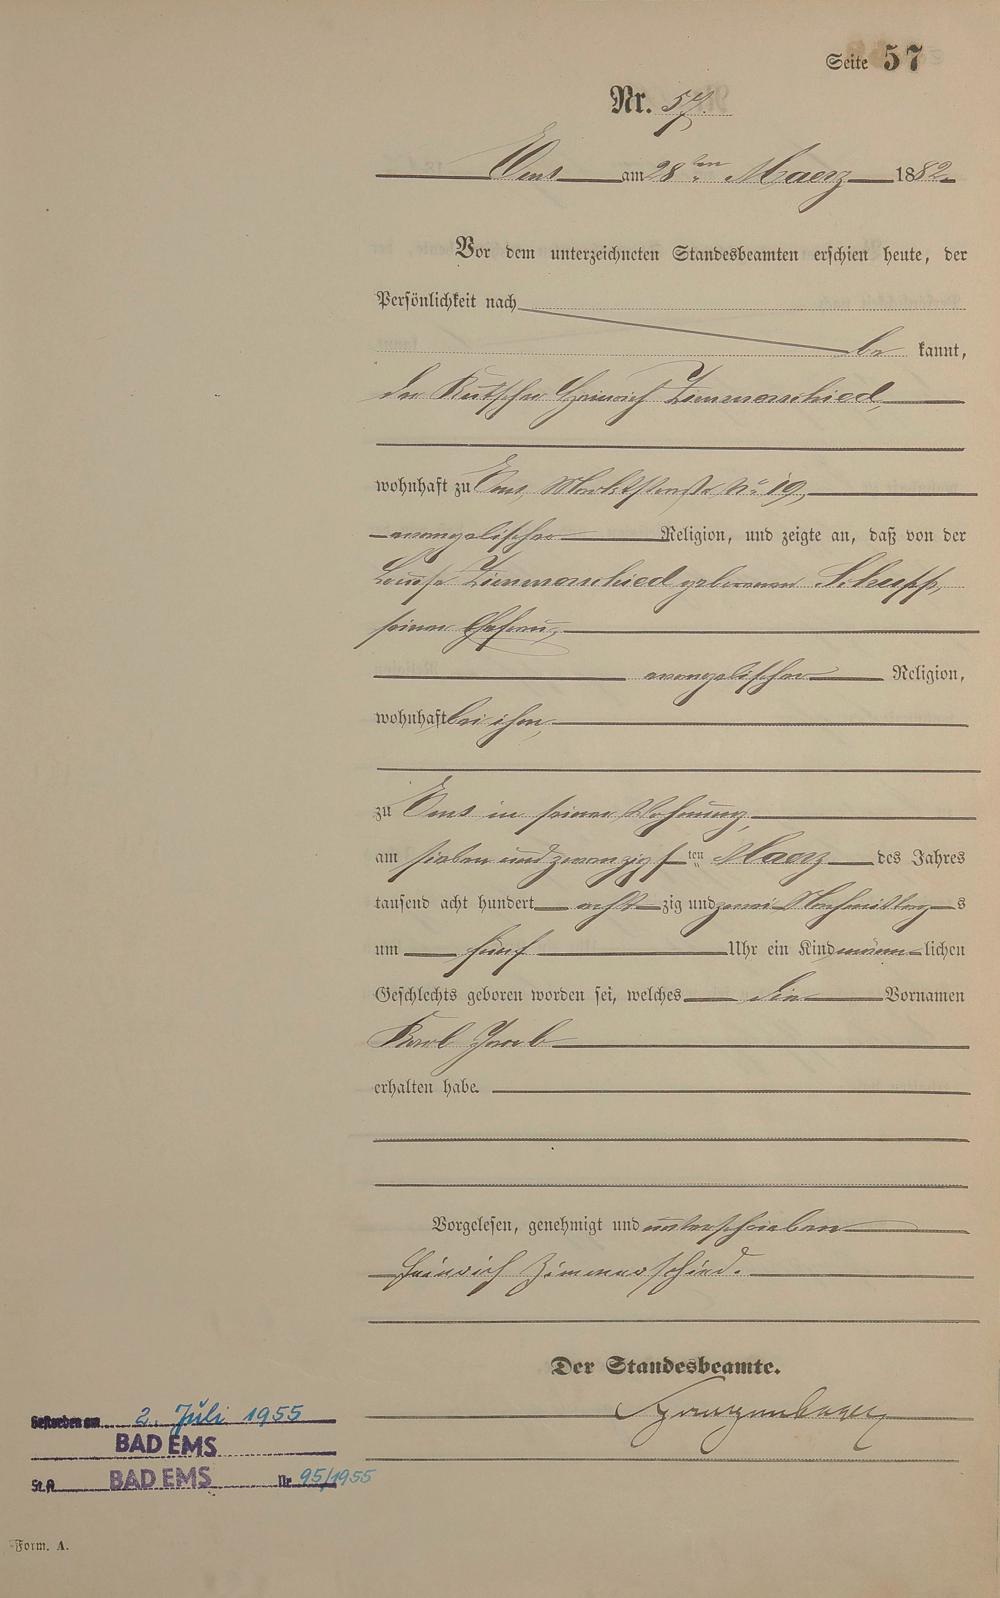 Seite 57
Nr. 57.
Ems am 28ten Maerz 1882.
Vor dem unterzeichneten Standesbeamten erschien heute, der
Persönlichkeit nach
be kannt,
der Kutscher Heinrich Zimmerschied,
wohnhaft zu Ems, Marktstraße No 19,
evangelischer Religion, und zeigte an, daß von der
Louise Zimmerschied geborenen Schupp,
seiner Ehefrau,
evangelischer Religion,
wohnhaft bei ihm,
zu Ems in seiner Wohnung,
am sieben und zwanzigsten Maerz des Jahres
tausend acht hundert acht zig und zwei Nachmittags
um fünf Uhr ein Kind männlichen
Geschlechts geboren worden sei, welches die Vornamen
Karl Jacob
erhalten habe.
Vorgelesen, genehmigt und unterschrieben
Heinrich Zimmerschied.
Der Standesbeamte.
Gestorben am 2. Juli 1955
BAD EMS
St. A. BAD EMS Nr. 95/1955
Form. A.